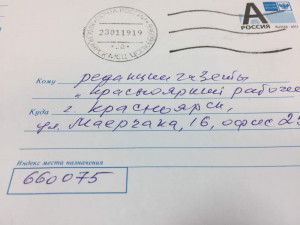 23011919
А
РОССИЯ
Кому редакции газеты
"Красноярский рабочий
Куда г. Красноярск,
ул. Маерчака, 16, офис 2
Индекс места назначения
660075